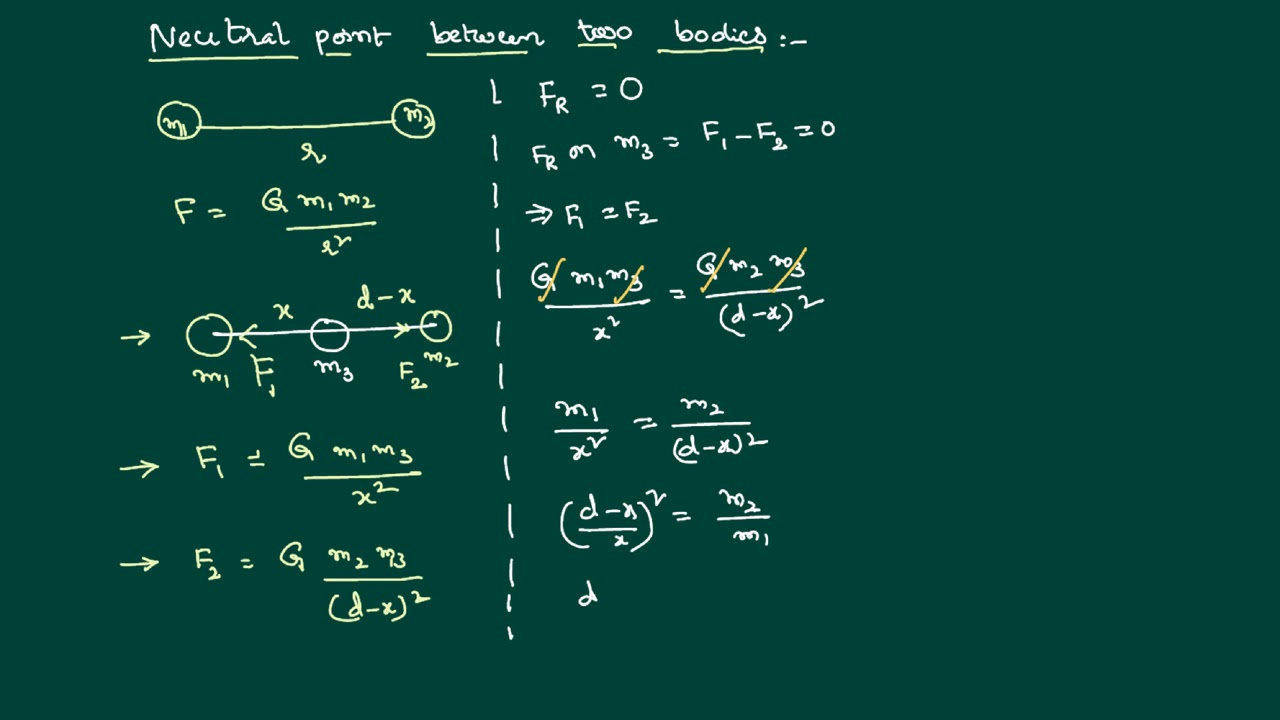 Neutral point between two bodies :-
m1 m2
r
F = G m1 m2 / r²
x d-x
m1 F1 m3 F2 m2
→ F1 = G m1 m3 / x²
→ F2 = G m2 m3 / (d-x)²
FR = 0
FR on m3 = F1 - F2 = 0
⇒ F1 = F2
G m1 m3 / x² = G m2 m3 / (d-x)²
m1 / x² = m2 / (d-x)²
(d-x / x)² = m2 / m1
d